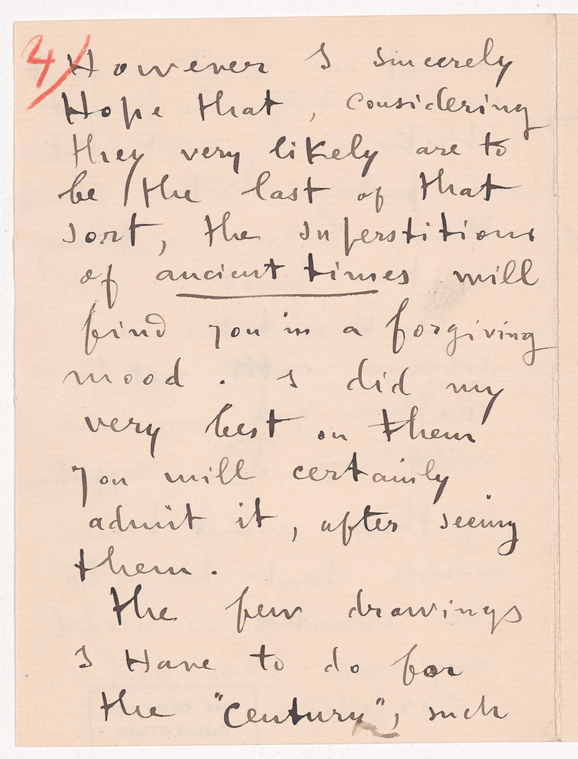 4/ However I sincerely
Hope that, considering
they very likely are to
be the last of that
sort, the superstitions
of ancient times will
find you in a forgiving
mood. I did my
very best on them
you will certainly
admit it, after seeing
them.
the few drawings
I Have to do for
the "century", such